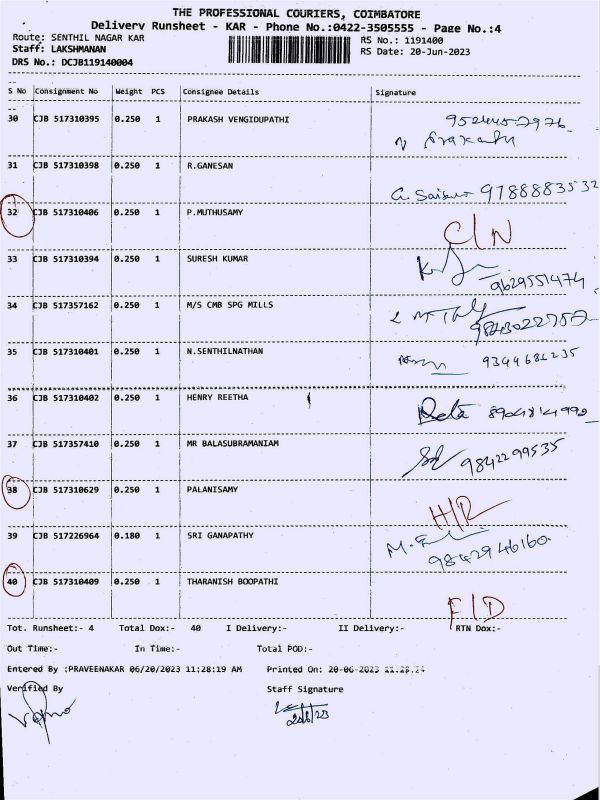 THE PROFESSIONAL COURIERS, COIMBATORE
Delivery Runsheet - KAR - Phone No.:0422-3505555 - Page No.:4
Route: SENTHIL NAGAR KAR
RS No.: 1191400
Staff: LAKSHMANAN
RS Date: 20-Jun-2023
DRS No.: DCJB119140004
S No Consignment No Weight PCS Consignee Details Signature
30 CJB 517310395 0.250 1 PRAKASH VENGIDUPATHI
31 CJB 517310398 0.250 1 R.GANESAN
9788883532
32 CJB 517310406 0.250 1 P.MUTHUSAMY
C/N
33 CJB 517310394 0.250 1 SURESH KUMAR
9629551474
34 CJB 517357162 0.250 1 M/S CMB SPG MILLS
35 CJB 517310401 0.250 1 N.SENTHILNATHAN
9344684235
36 CJB 517310402 0.250 1 HENRY REETHA
8904814990
37 CJB 517357410 0.250 1 MR BALASUBRAMANIAM
9842299535
38 CJB 517310629 0.250 1 PALANISAMY
H/R
39 CJB 517226964 0.180 1 SRI GANAPATHY
9842946160
40 CJB 517310409 0.250 1 THARANISH BOOPATHI
F/D
Tot. Runsheet:- 4 Total Dox:- 40 I Delivery:- II Delivery:- RTN Dox:-
Out Time:- In Time:- Total POD:-
Entered By :PRAVEENAKAR 06/20/2023 11:28:19 AM Printed On: 20-06-2023 11:28:24
Verified By Staff Signature
20/6/23